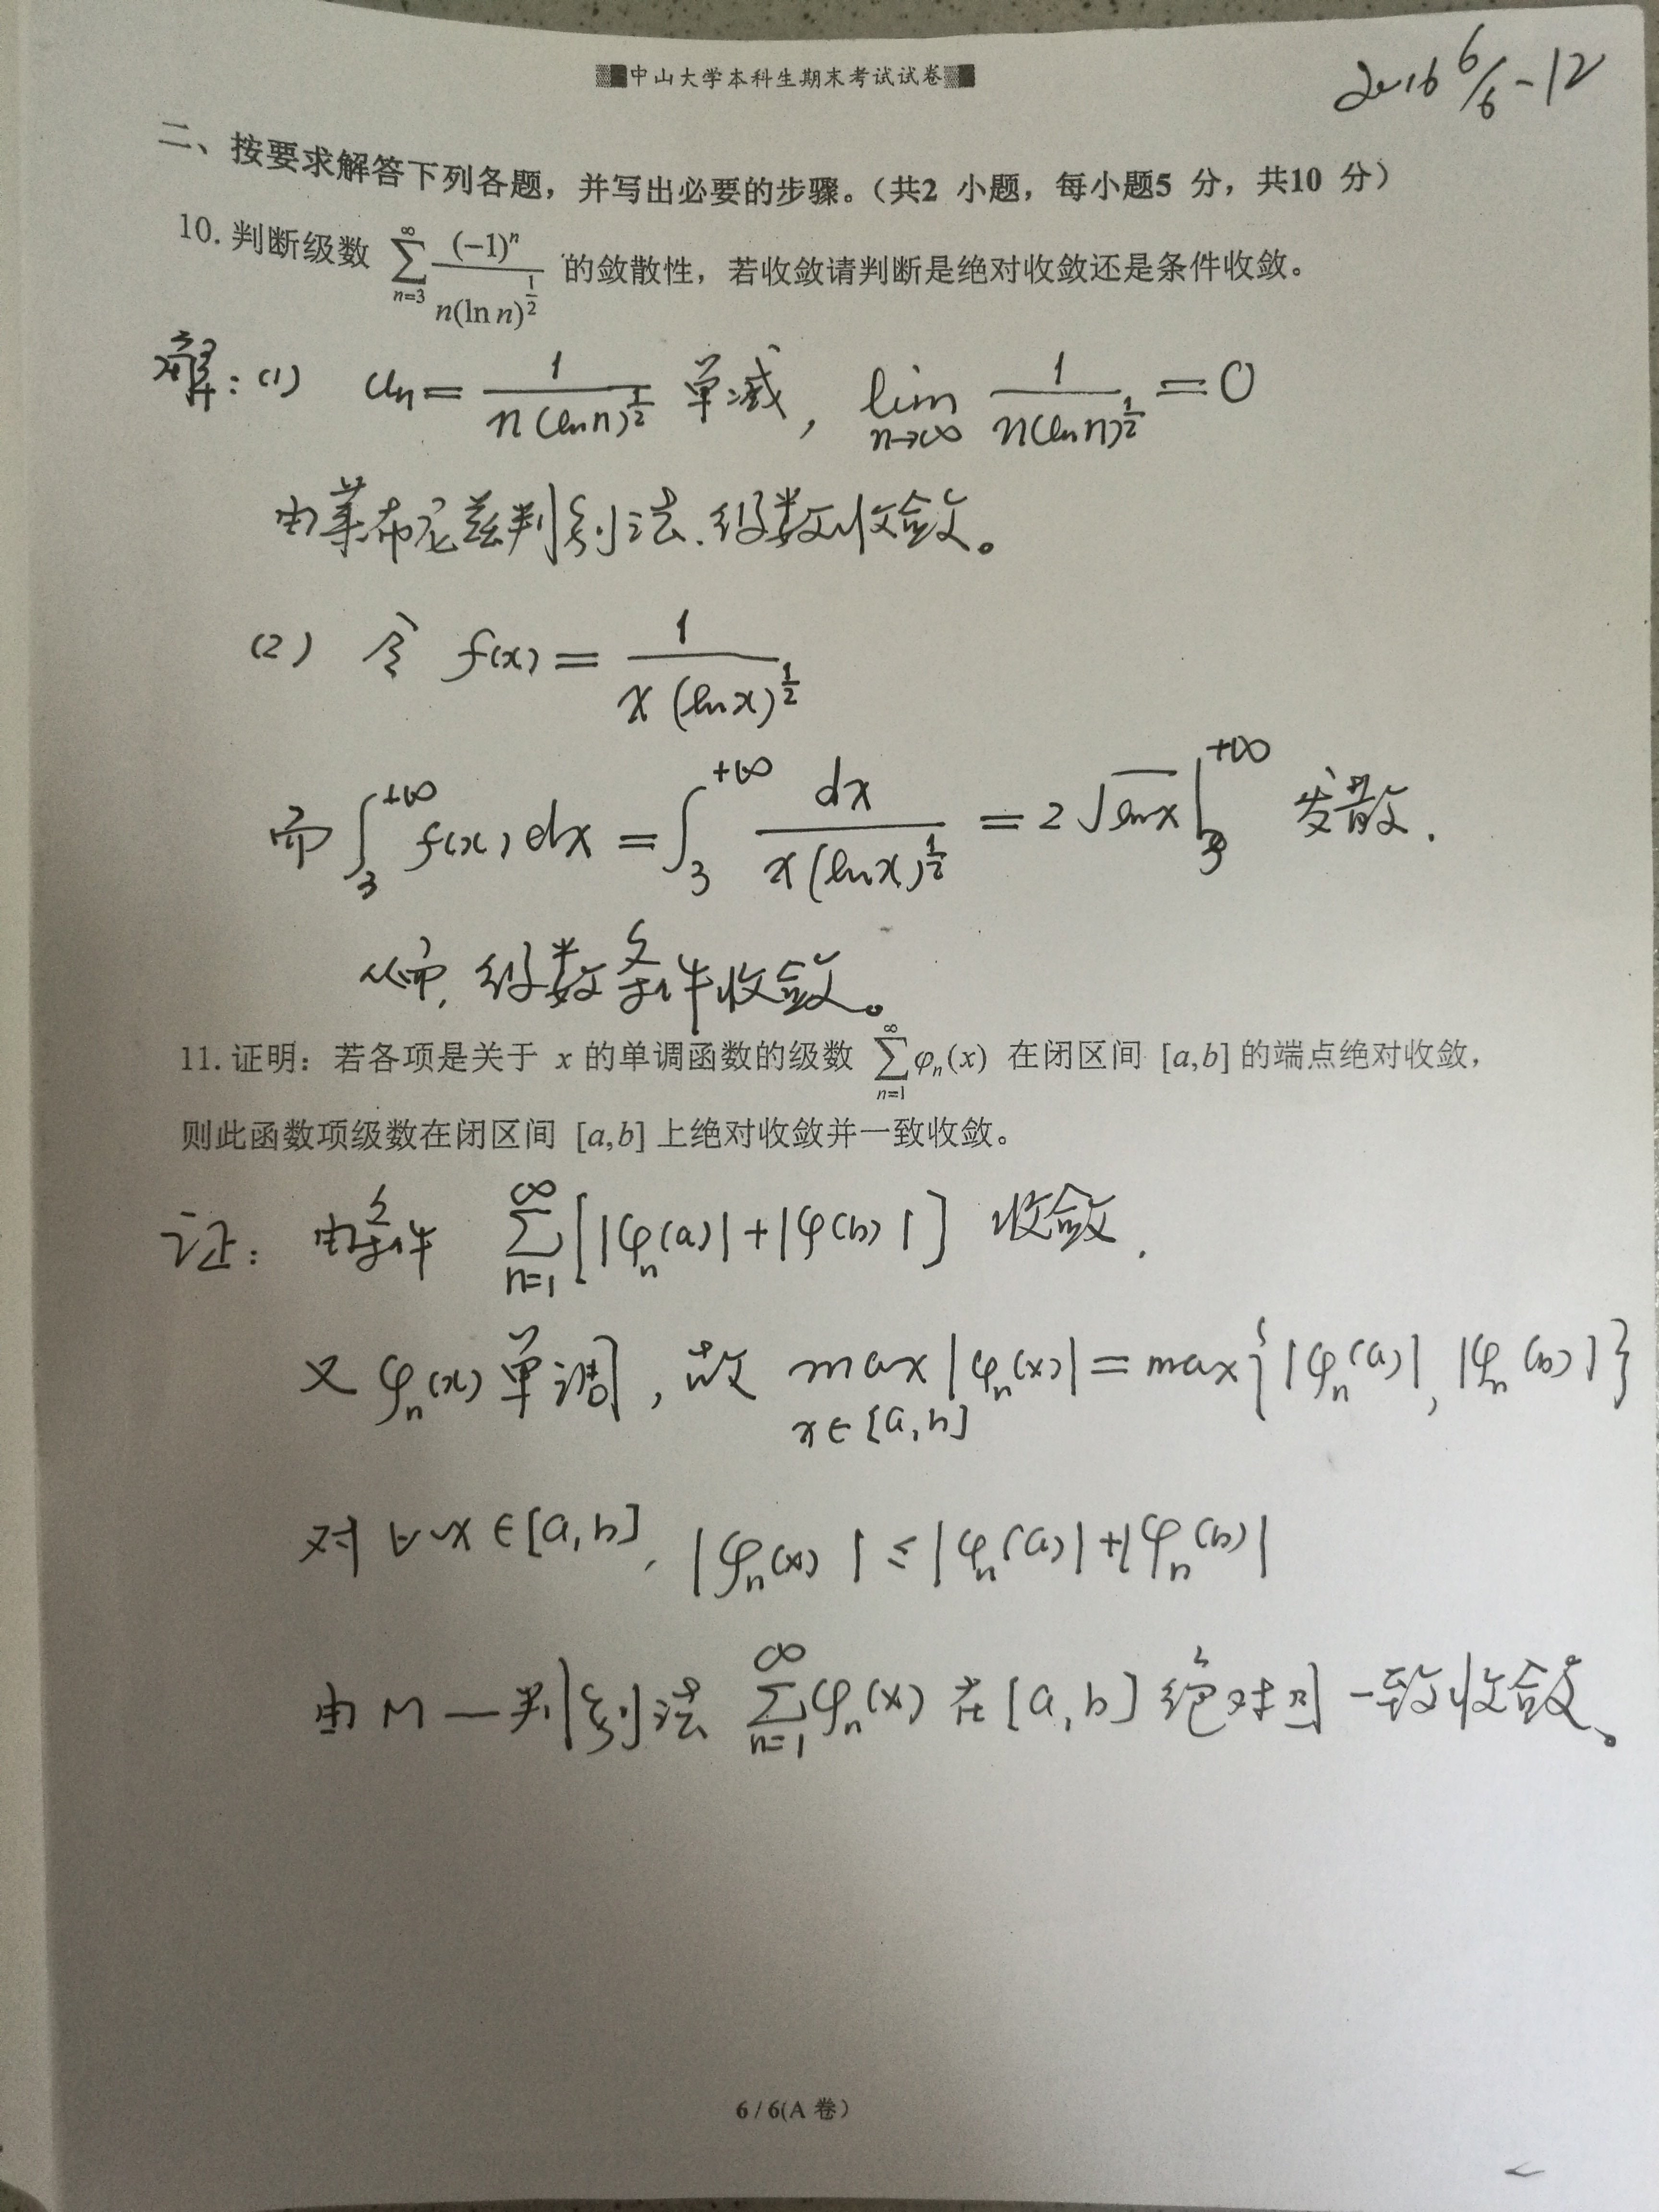 中山大学本科生期末考试试卷
2016 6/6-12
二、按要求解答下列各题，并写出必要的步骤。（共2 小题，每小题5 分，共10 分）
10. 判断级数 $\sum_{n=3}^{\infty}\frac{(-1)^n}{n(\ln n)^{\frac{1}{2}}}$ 的敛散性，若收敛请判断是绝对收敛还是条件收敛。
解：(1) $u_n=\frac{1}{n(\ln n)^{\frac{1}{2}}}$ 单减，$\lim_{n\to\infty}\frac{1}{n(\ln n)^{\frac{1}{2}}}=0$
由莱布尼兹判别法．级数收敛。
(2) 令 $f(x)=\frac{1}{x(\ln x)^{\frac{1}{2}}}$
而 $\int_3^{+\infty}f(x)dx=\int_3^{+\infty}\frac{dx}{x(\ln x)^{\frac{1}{2}}}=2\sqrt{\ln x}\Big|_3^{+\infty}$ 发散．
从而，级数条件收敛。
11. 证明：若各项是关于 x 的单调函数的级数 $\sum_{n=1}^{\infty}\varphi_n(x)$ 在闭区间 [a,b] 的端点绝对收敛，
则此函数项级数在闭区间 [a,b] 上绝对收敛并一致收敛。
证：由条件 $\sum_{n=1}^{\infty}[|\varphi_n(a)|+|\varphi(b)|]$ 收敛．
又 $\varphi_n(x)$ 单调，故 $\max_{x\in[a,b]}|\varphi_n(x)|=\max\{|\varphi_n(a)|,|\varphi_n(b)|\}$
对 $\forall x\in[a,b]$，$|\varphi_n(x)|\le|\varphi_n(a)|+|\varphi_n(b)|$
由 M—判别法 $\sum_{n=1}^{\infty}\varphi_n(x)$ 在 [a,b] 绝对且一致收敛。
6 / 6(A 卷)